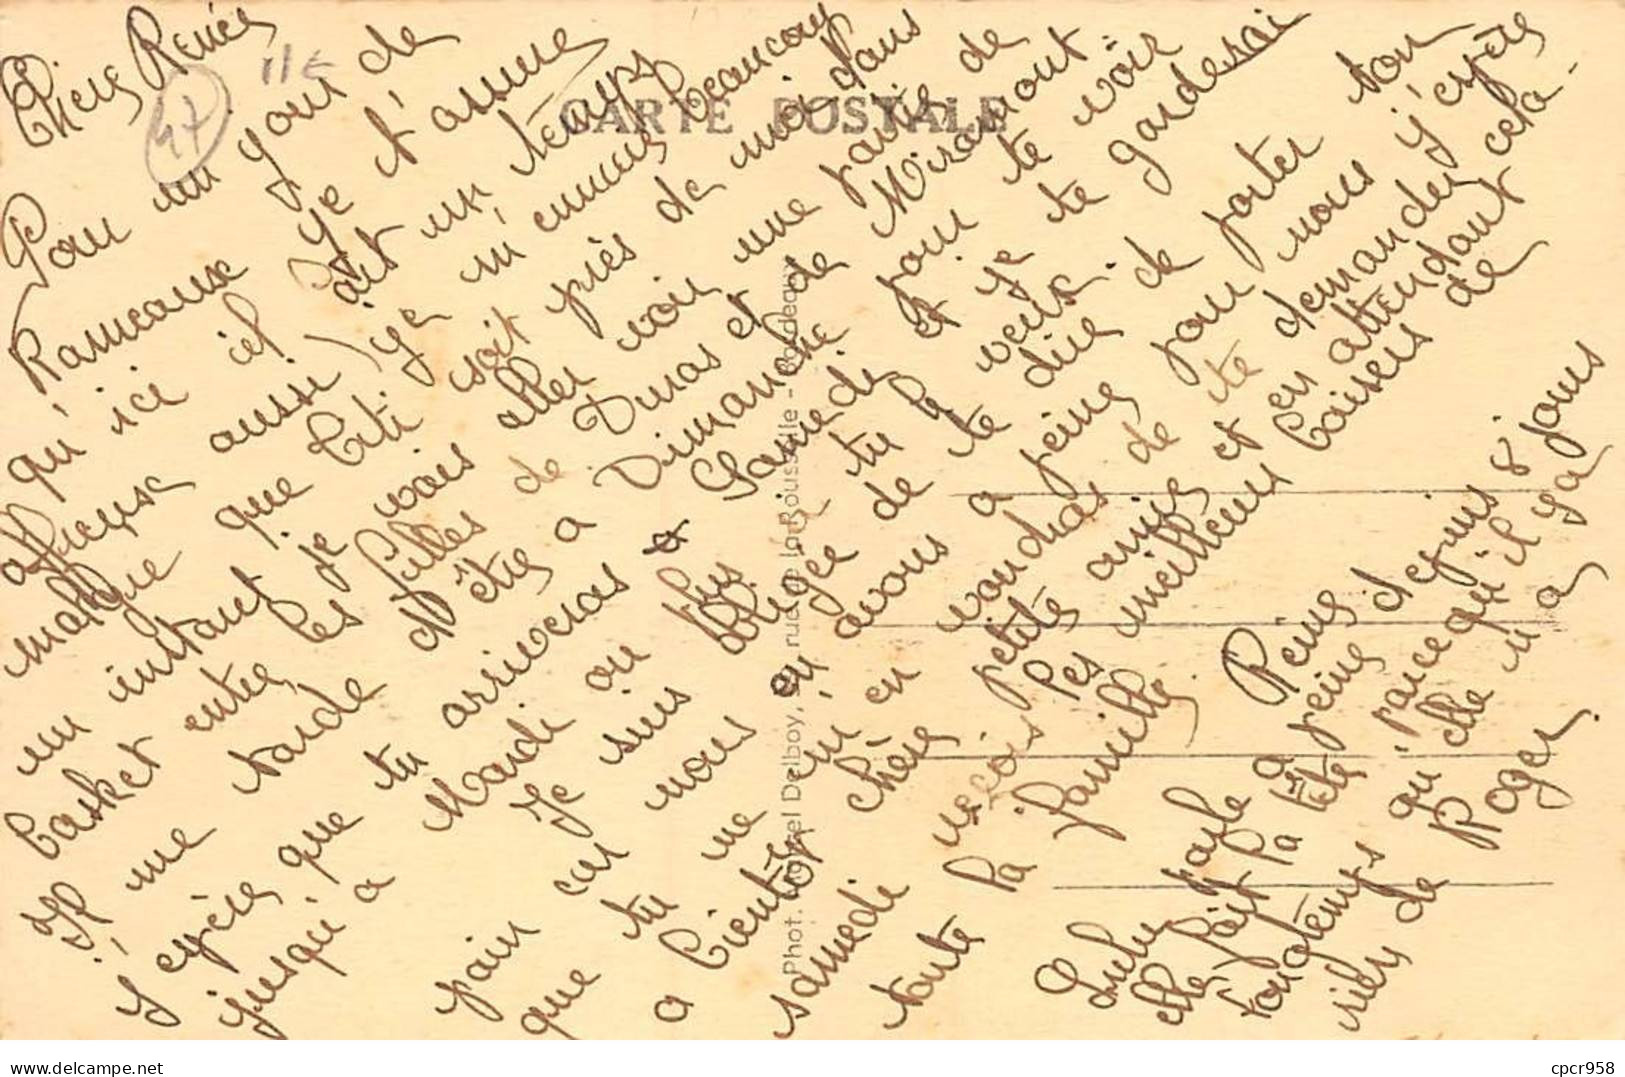 Chère Renée
Pour un jour de
Rameause je t'assure
qu'ici il fait un temps
affreuse aussi je m'ennuie beaucoup
malgré que Titi soit près de moi dans
un instant je vais aller voir une partie de
basket entre les filles de Duras et de Miramont.
Il me tarde d'être a Dimanche pour te voir
j'espère que tu arriveras Samedi et je te garderai
jusqu'a Mardi ou plus tu le veux.
Je suis obligée de te dire de porter ton
pain car nous en avons a peine pour nous j'espère
que tu ne m'en voudras de te demander cela.
a bientôt chère petite amie et en attendant
samedi reçois les meilleurs baisers de
toute la famille.
Reine
Lulu parle a peine depuis 8 jours
elle fait la tête parce qu'il y a
longtemps qu'elle n'a
rien de Roger.
CARTE POSTALE
Phot. Marcel Delboy, rue de la Rousselle - Bordeaux
47
11 €
delcampe.net
cpcr958